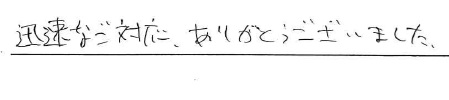 迅速なご対応、ありがとうございました。